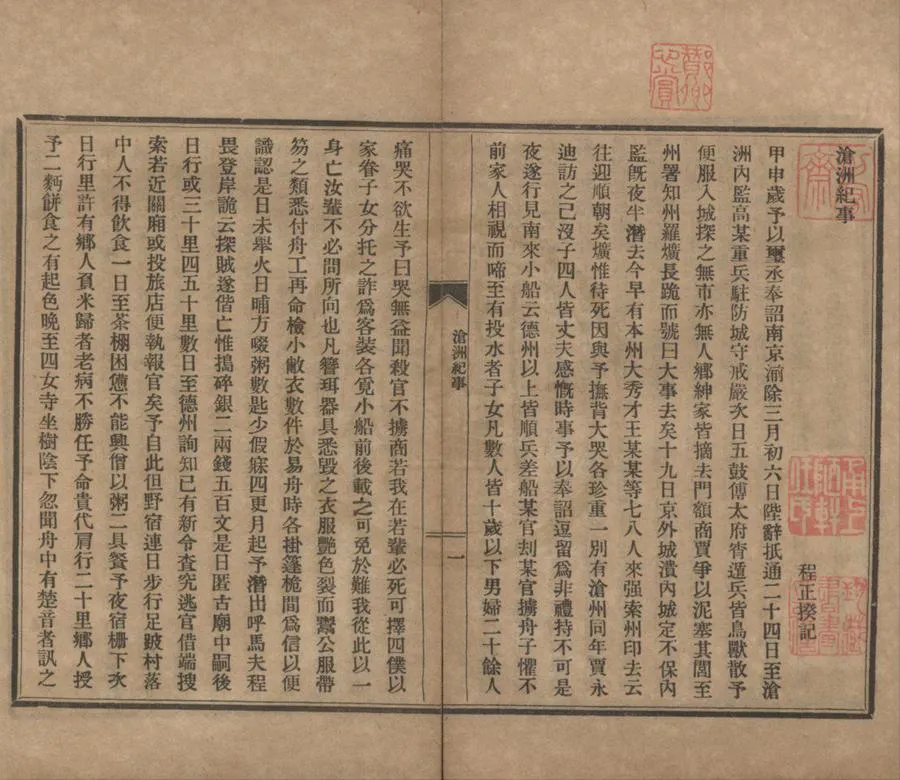 滄洲紀事
程正揆記
甲申歲予以璽丞奉詔南京湔除三月初六日陛辭抵通二十四日至滄
洲內監高某重兵駐防城守戒嚴次日五鼓傳太府宵遁兵皆鳥獸散予
便服入城探之無市亦無人鄉紳家皆摘去門額商賈爭以泥塞其閭至
州署知州羅爌長跪而號曰大事去矣十九日京外城潰內城定不保內
監旣夜半潛去今早有本州大秀才王某某等七八人來强索州印去云
往迎順朝矣爌惟待死因與予撫背大哭各珍重一別有滄州同年賈永
迪訪之已沒子四人皆丈夫感慨時事予以奉詔逗留爲非禮持不可是
夜遂行見南來小船云德州以上皆順兵差船某官刦某官擄舟子懼不
前家人相視而啼至有投水者子女凡數人皆十歲以下男婦二十餘人
滄洲紀事
一
痛哭不欲生予曰哭無益聞殺官不擄商若我在若輩必死可擇四僕以
家眷子女分托之詐爲客裝各覓小船前後載之可免於難我從此以一
身亡汝輩不必問所向也凡簪珥器具悉毀之衣服艷色裂而鬻公服帶
笏之類悉付舟工再命檢小敝衣數件於易舟時各掛篷桅間爲信以便
識認是日未舉火日晡方啜粥數匙少假寐四更月起予潛出呼馬夫程
畏登岸詭云探賊遂偕亡惟搗碎銀二兩錢五百文是日匿古廟中嗣後
日行或三十里四五十里數日至德州詢知已有新令查究逃官借端搜
索若近關廂或投旅店便執報官矣予自此但野宿連日步行足跛村落
中人不得飮食一日至茶棚困憊不能興僧以粥二具餐予夜宿柵下次
日行里許有鄉人負米歸者老病不勝任予命貴代肩行二十里鄉人授
予二麪餅食之有起色晚至四女寺坐樹陰下忽聞舟中有楚音者訊之